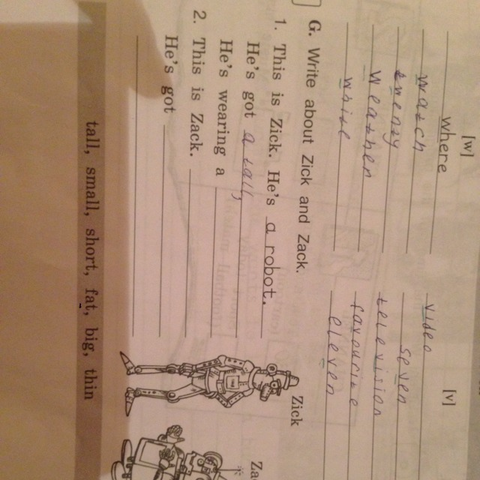 [w] [v]
where video
watch seven
twenty television
weather favourite
eleven
G. Write about Zick and Zack.
1. This is Zick. He's a robot.
He's got a tall,
He's wearing a
2. This is Zack.
He's got
Zick
tall, small, short, fat, big, thin